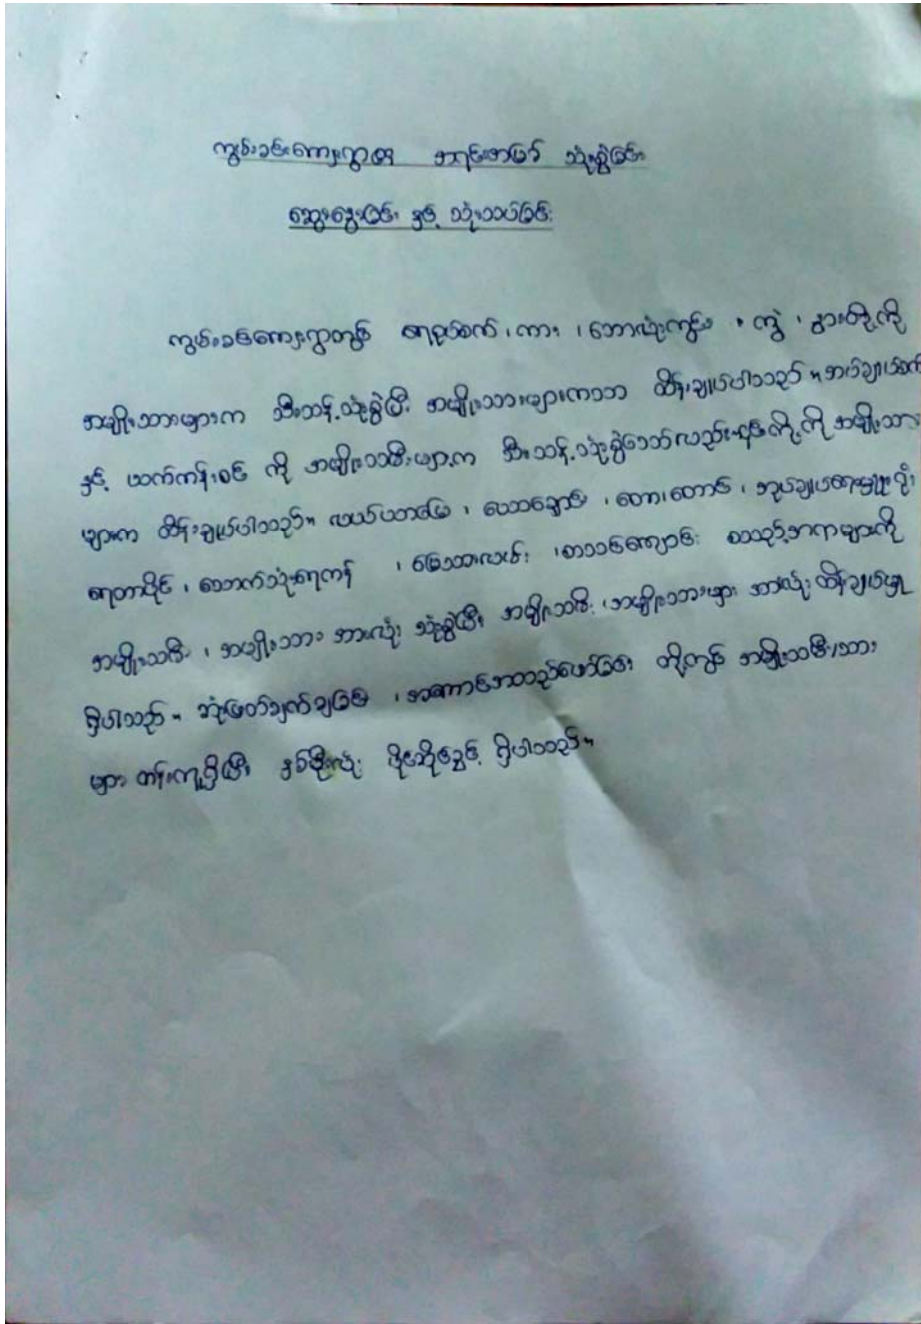 ကွမ်းခင်းကျေးရွာ၏ အရင်းအမြစ် သုံးစွဲခြင်း
ဆွေးနွေးခြင်း နှင့် သုံးသပ်ခြင်း
ကွမ်းခင်းကျေးရွာတွင် ရေစုပ်စက်၊ ကား၊ ဘောလုံးကွင်း၊ ကျွဲ၊ နွားတို့ကို
အမျိုးသားများက သီးသန့်သုံးစွဲပြီး အမျိုးသားများကသာ ထိန်းချုပ်ပါသည်။ အပ်ချုပ်စက်
နှင့် ယက်ကန်းစင် ကို အမျိုးသမီးများက သီးသန့်သုံးစွဲသော်လည်း ၎င်းတို့ကို အမျိုးသား
များက ထိန်းချုပ်ပါသည်။ လယ်ယာမြေ၊ ဟေလာချောင်း၊ တော၊ တောင်၊ အုပ်ချုပ်ရေးမှူးရုံး
ရေတာပိုင်၊ သောက်သုံးရေကန်၊ မြေသားလမ်း၊ စာသင်ကျောင်း စသည့်အရာများကို
အမျိုးသမီး၊ အမျိုးသား အားလုံး သုံးစွဲပြီး အမျိုးသမီး၊ အမျိုးသားများ အားလုံး ထိန်းချုပ်မှု
ရှိပါသည်။ ဆုံးဖြတ်ချက်ချခြင်း၊ အကောင်အထည်ဖော်ခြင်း တို့တွင် အမျိုးသမီး/သား
များ တန်းတူရှိပြီး နှစ်ဦးလုံး ပိုင်ဆိုင်ခွင့် ရှိပါသည်။